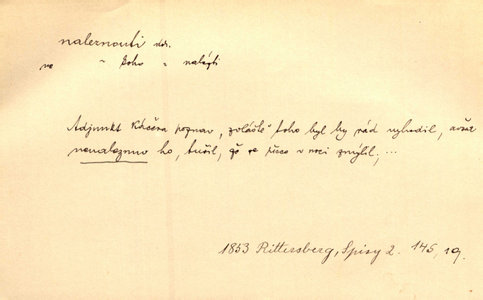 nalernouti dok.
ve " koho " nalézti
Adjunkt Káčera poznav, zvláště toho byl by rád vyhodil, avšak
nenaleznuv ho, tušil, že se přece v noci zmýlil, ...
1853 Rittersberg, Spisy 2. 145, 19.